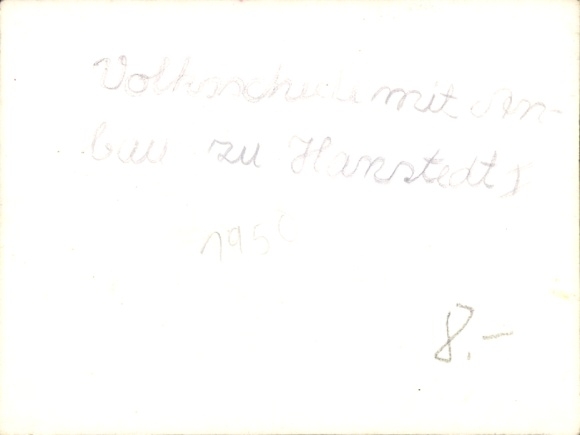 Volksschule mit An-
bau zu Hanstedt I
195
8.-